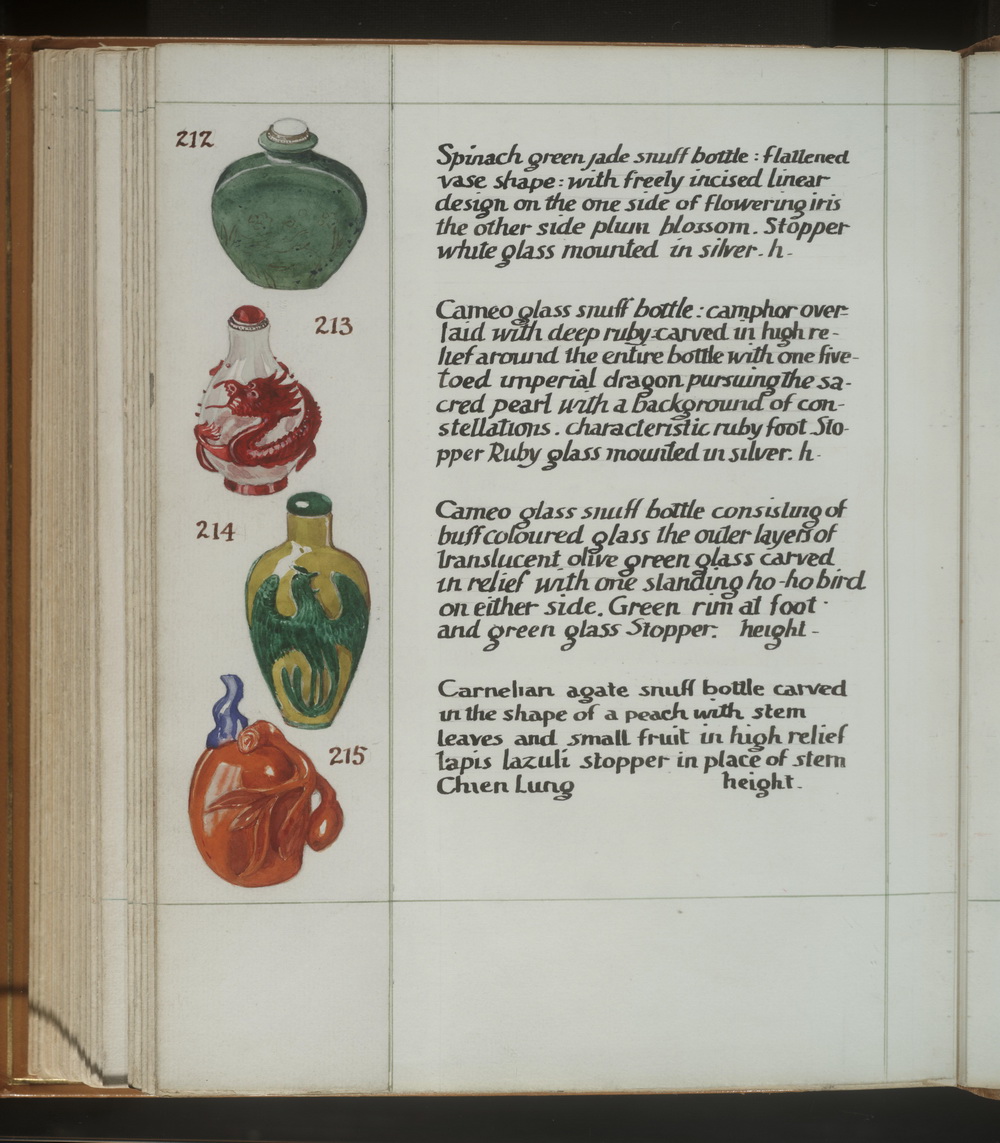 212
Spinach green jade snuff bottle : flattened
vase shape : with freely incised linear
design on the one side of flowering iris
the other side plum blossom. Stopper
white glass mounted in silver. h -
213
Cameo glass snuff bottle : camphor over=
laid with deep ruby-carved in high re -
lief around the entire bottle with one five-
toed imperial dragon pursuing the sa-
cred pearl with a background of con-
stellations. characteristic ruby foot Sto-
pper Ruby glass mounted in silver. h -
214
Cameo glass snuff bottle consisting of
buff coloured glass the outer layers of
translucent olive green glass carved
in relief with one standing ho-ho bird
on either side. Green rim at foot
and green glass Stopper. height -
215
Carnelian agate snuff bottle carved
in the shape of a peach with stem
leaves and small fruit in high relief
lapis lazuli stopper in place of stem
Chien Lung height.